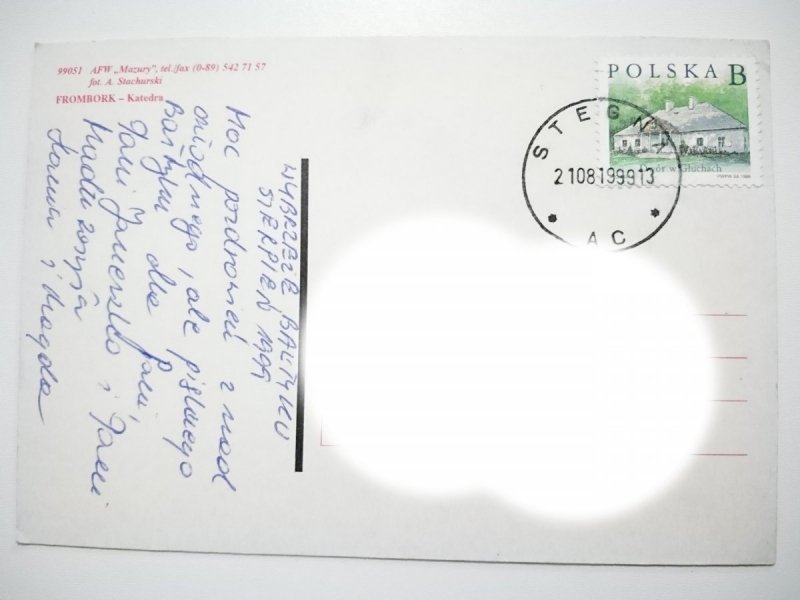 99051 AFW „Mazury”, tel./fax (0-89) 542 71 57
fot. A. Stachurski
FROMBORK – Katedra
WYBRZEŻE BAŁTYKU
SIERPIEŃ 1999
Moc pozdrowień z nad
ale pięknego
Bałtyku dla Pani,
Pani i Pani
i Magda
POLSKA B
Dwór w Głuchach
STEGNA
21081999 13
* AC *